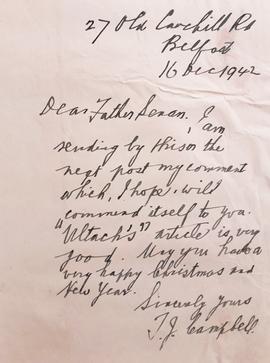 27 Old Cavehill Rd
Belfast
16 Dec 1942
Dear Father Senan, I am
sending by this or the
next post my comment
which, I hope, will
commend itself to you.
"Ultach's" article is very
good. May you have a
very happy Christmas and
New Year.
Sincerely Yours
T.J. Campbell.